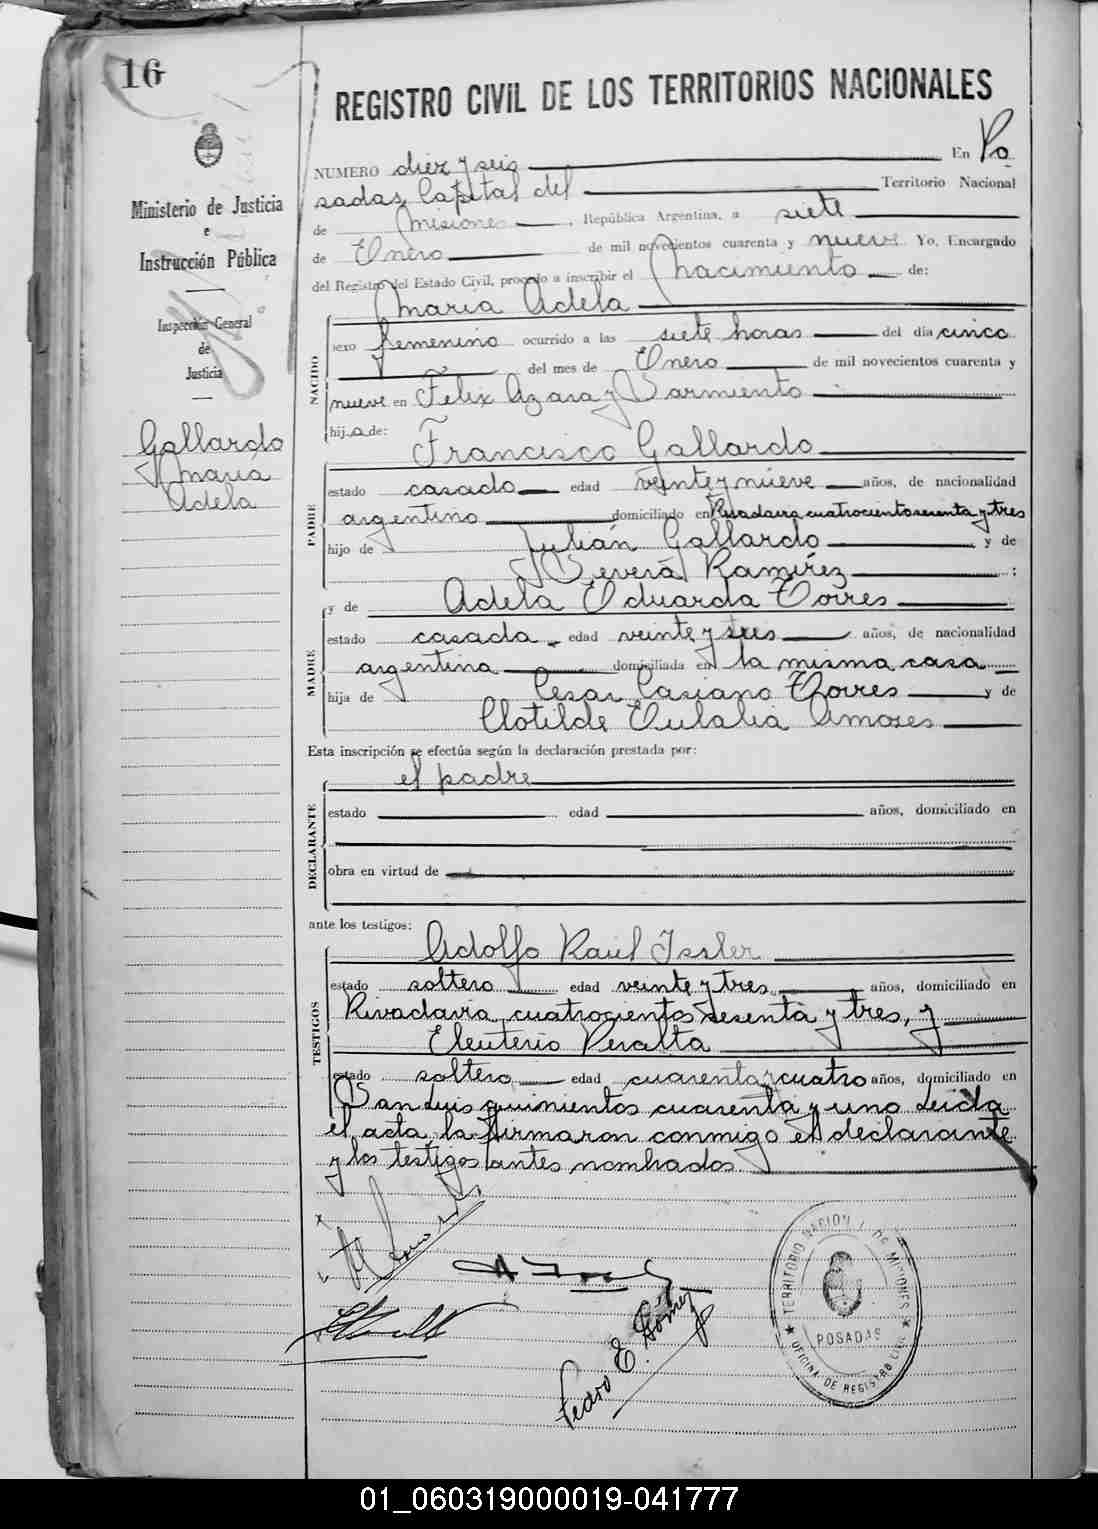 16
REGISTRO CIVIL DE LOS TERRITORIOS NACIONALES
Ministerio de Justicia
e
Instrucción Pública
Inspección General
de
Justicia
Gallardo
Maria
Adela
NUMERO diez y seis En Po
sadas, Capital del Territorio Nacional
de Misiones, República Argentina, a siete
de Enero de mil novecientos cuarenta y nueve Yo, Encargado
del Registro del Estado Civil, procedo a inscribir el nacimiento de:
NACIDO
Maria Adela
sexo femenino ocurrido a las siete horas del día cinco
del mes de Enero de mil novecientos cuarenta y
nueve en Felix Azara y Sarmiento
hija de:
PADRE
Francisco Gallardo
estado casado edad veinte y nueve años, de nacionalidad
argentino domiciliado en Rivadavia cuatrocientos sesenta y tres
hijo de Julián Gallardo y de
Severa Ramírez;
MADRE
y de Adela Eduarda Torres
estado casada edad veinte y tres años, de nacionalidad
argentina domiciliada en la misma casa
hija de Cesar Casiano Torres y de
Clotilde Eulalia Amores
Esta inscripción se efectúa según la declaración prestada por:
DECLARANTE
el padre
estado edad años, domiciliado en
obra en virtud de
ante los testigos:
TESTIGOS
Adolfo Raúl Issler
estado soltero edad veinte y tres años, domiciliado en
Rivadavia cuatrocientos sesenta y tres, y
Eleuterio Peralta
estado soltero edad cuarenta y cuatro años, domiciliado en
San Luis quinientos cuarenta y uno Leida
el acta la firmaron conmigo el declarante
y los testigos antes nombrados
Pedro E. Gómez
TERRITORIO NACIONAL DE MISIONES
POSADAS
OFICINA DE REGISTRO CIVIL
01_060319000019-041777